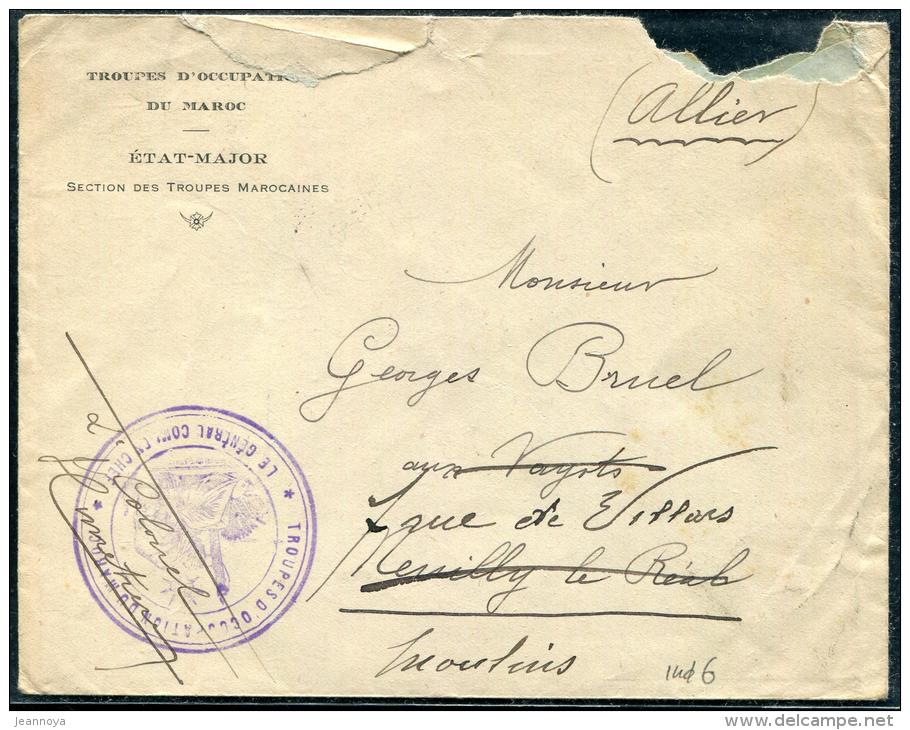 TROUPES D'OCCUPATI
DU MAROC
ÉTAT-MAJOR
SECTION DES TROUPES MAROCAINES
(Allier)
Monsieur
Georges Bruel
aux Vayots
rue de Villars
Neuilly le Réal
Moulins
TROUPES D'OCCUPATION DU MAROC * LE GÉNÉRAL COMT EN CHEF *
Colonel
ind 6
jeannoya
delcampe.net